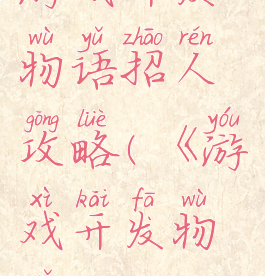 wù yǔ zhāo rén
物语招人
gōng lüè yóu
攻略(《游
xì kāi fā wù
戏开发物